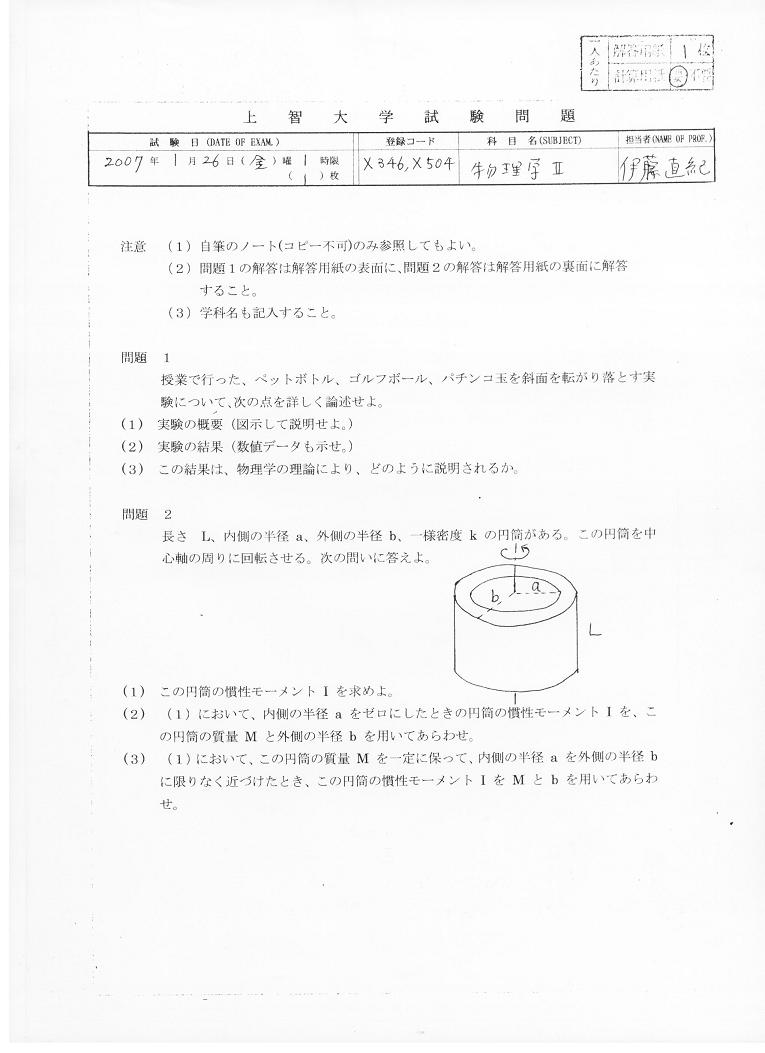 一人あたり
解答用紙 1 枚
計算用紙 要 不要
上 智 大 学 試 験 問 題
試 験 日 (DATE OF EXAM.) 登録コード 科 目 名(SUBJECT) 担当者(NAME OF PROF.)
2007 年 1 月 26 日 (金) 曜 1 時限 X346, X504 物理学 II 伊藤直紀
( 1 ) 枚
注意 (1) 自筆のノート(コピー不可)のみ参照してもよい。
(2) 問題1の解答は解答用紙の表面に、問題2の解答は解答用紙の裏面に解答
すること。
(3) 学科名も記入すること。
問題 1
授業で行った、ペットボトル、ゴルフボール、パチンコ玉を斜面を転がり落とす実
験について、次の点を詳しく論述せよ。
(1) 実験の概要 (図示して説明せよ。)
(2) 実験の結果 (数値データも示せ。)
(3) この結果は、物理学の理論により、どのように説明されるか。
問題 2
長さ L、内側の半径 a、外側の半径 b、一様密度 k の円筒がある。この円筒を中
心軸の周りに回転させる。次の問いに答えよ。
b a
L
(1) この円筒の慣性モーメント I を求めよ。
(2) (1) において、内側の半径 a をゼロにしたときの円筒の慣性モーメント I を、こ
の円筒の質量 M と外側の半径 b を用いてあらわせ。
(3) (1) において、この円筒の質量 M を一定に保って、内側の半径 a を外側の半径 b
に限りなく近づけたとき、この円筒の慣性モーメント I を M と b を用いてあらわ
せ。